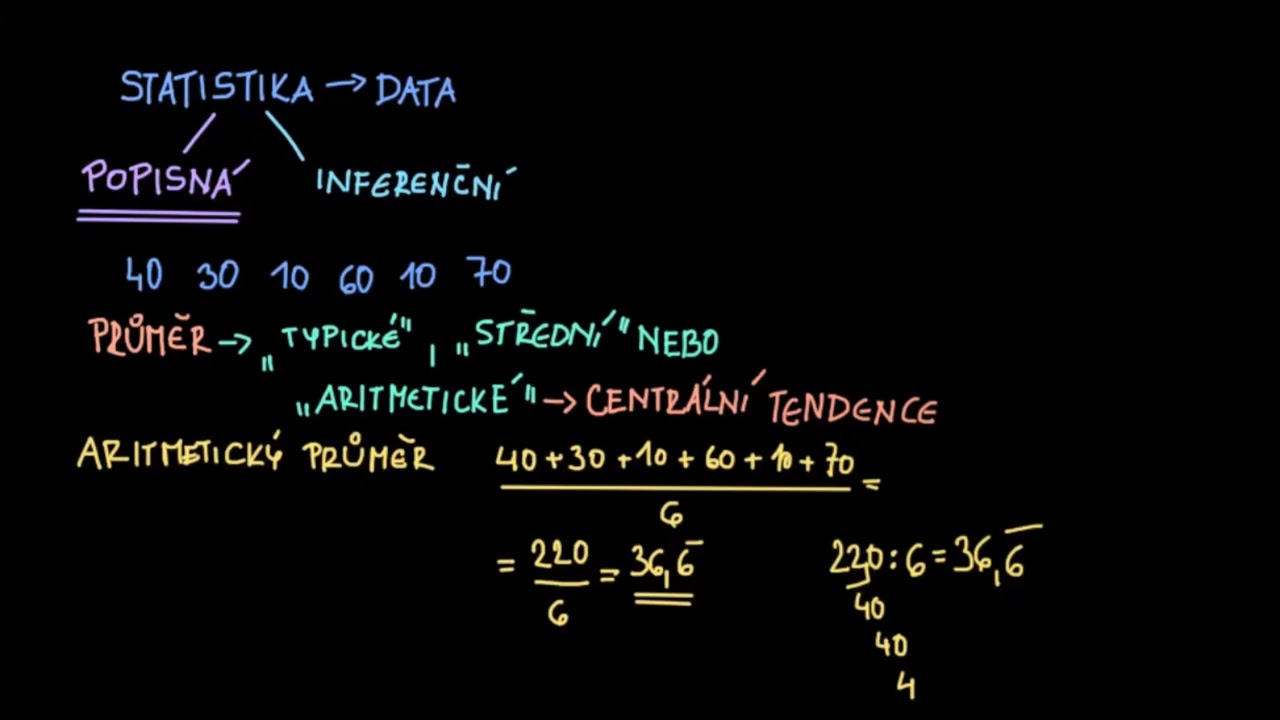 STATISTIKA → DATA
POPISNÁ INFERENČNÍ
40 30 10 60 10 70
PRŮMĚR → „TYPICKÉ", „STŘEDNÍ" NEBO
„ARITMETICKÉ" → CENTRÁLNÍ TENDENCE
ARITMETICKÝ PRŮMĚR 40+30+10+60+10+70 =
6
= 220 = 36,6̅ 220:6=36,6̅
6 40
40
4